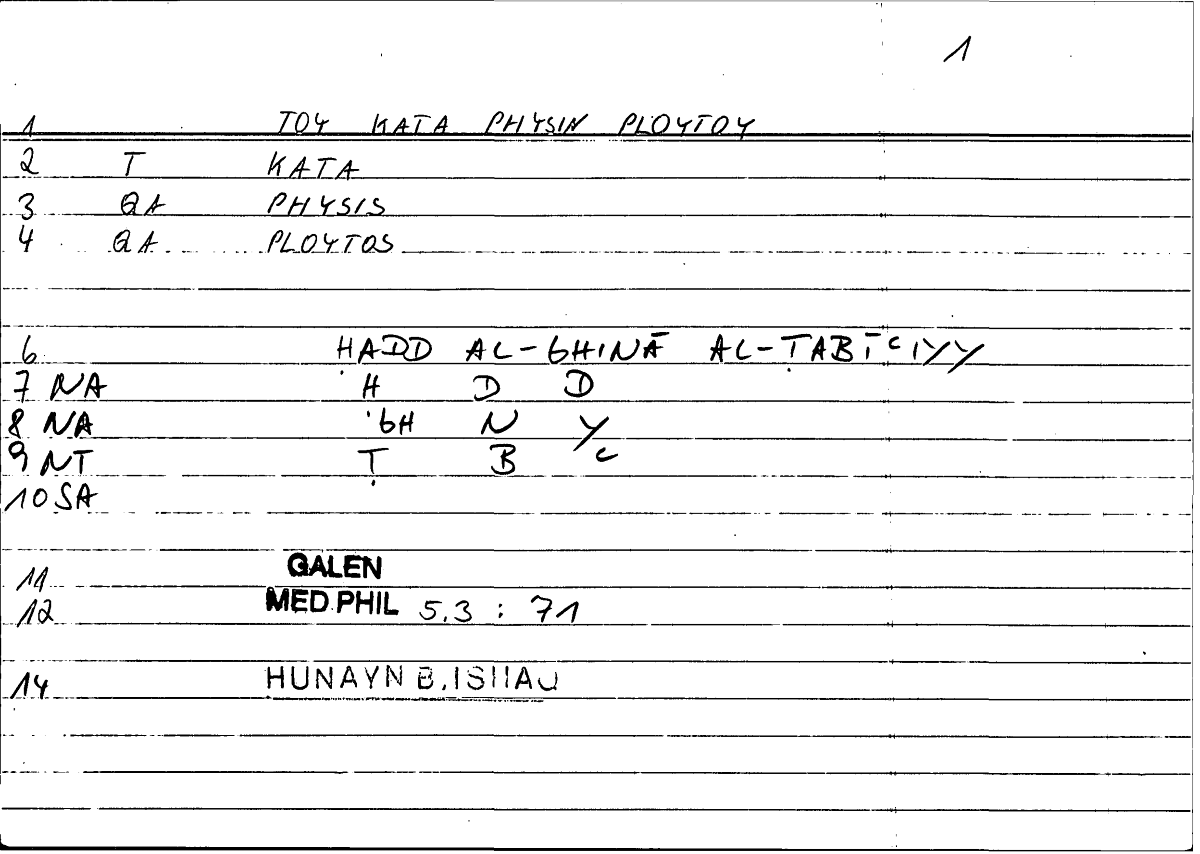 1
1 TOY KATA PHYSIN PLOYTOY
2 T KATA
3 QA PHYSIS
4 QA PLOYTOS
6 ḤADD AL-GHINĀ AL-ṬABĪʿIYY
7 NA Ḥ D D
8 NA GH N Y
9 NT Ṭ B ʿ
10 SA
11 GALEN
12 MED.PHIL 5,3 : 71
14 HUNAYN B.ISHAQ